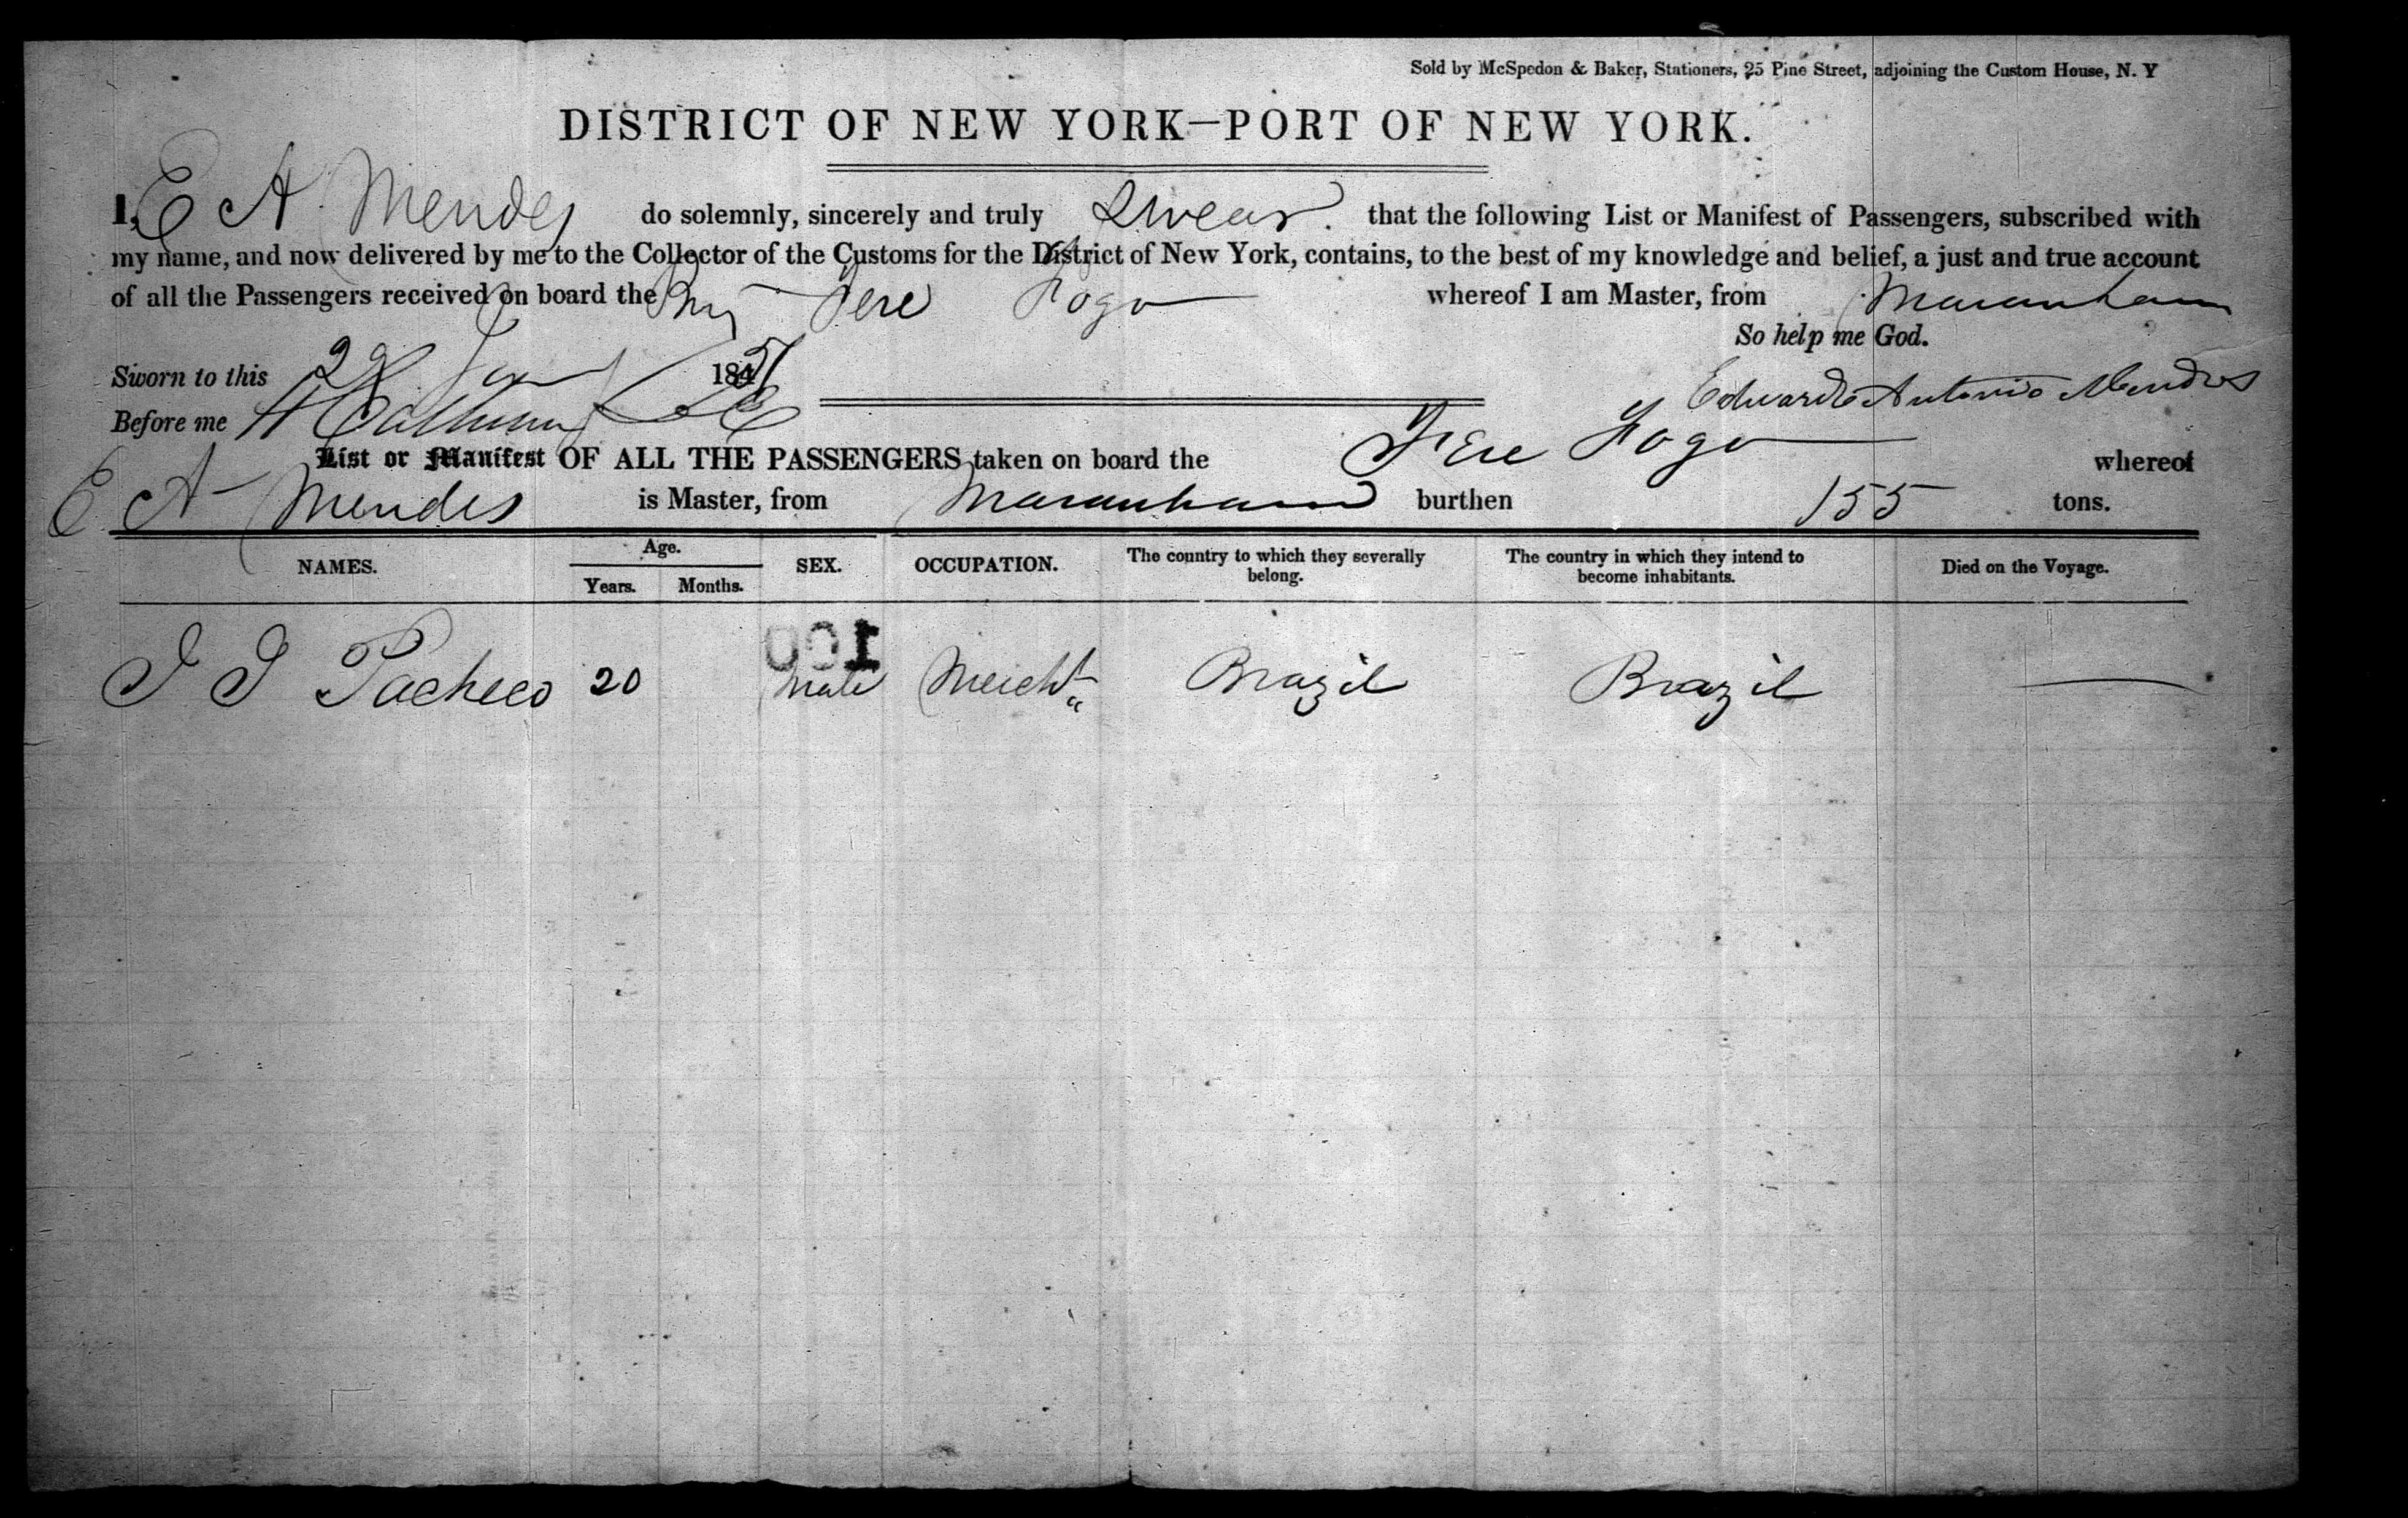 Sold by McSpedon & Baker, Stationers, 25 Pine Street, adjoining the Custom House, N. Y
DISTRICT OF NEW YORK—PORT OF NEW YORK.
I, E A Mendes do solemnly, sincerely and truly Swear that the following List or Manifest of Passengers, subscribed with
my name, and now delivered by me to the Collector of the Customs for the District of New York, contains, to the best of my knowledge and belief, a just and true account
of all the Passengers received on board the Brig Fogo whereof I am Master, from Maranham
So help me God.
Sworn to this 22 Jan 1851
Eduardo Antonio Mendes
Before me
List or Manifest OF ALL THE PASSENGERS taken on board the Fogo whereof
E A Mendes is Master, from Maranham burthen 155 tons.
NAMES. Age. Years. Months. SEX. OCCUPATION. The country to which they severally belong. The country in which they intend to become inhabitants. Died on the Voyage.
100
J J Pacheco 20 Male Mercht Brazil Brazil